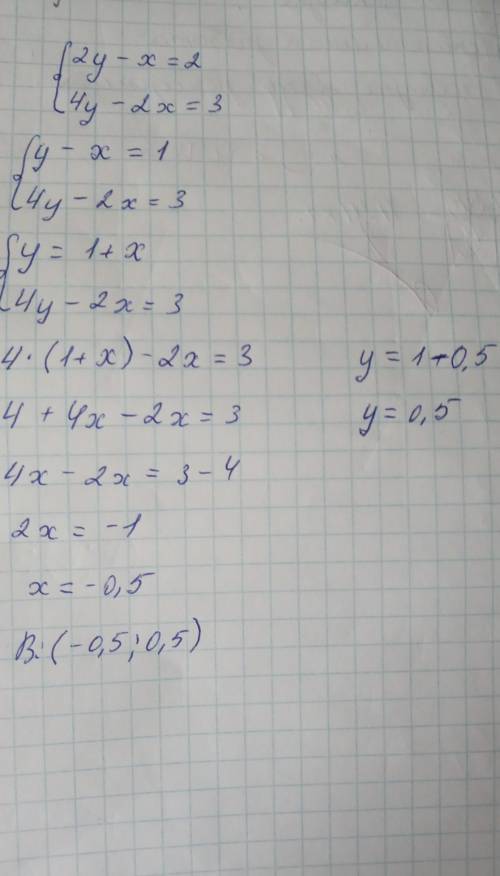 2y - x = 2
4y - 2x = 3
y - x = 1
4y - 2x = 3
y = 1 + x
4y - 2x = 3
4 · (1 + x) - 2x = 3
4 + 4x - 2x = 3
4x - 2x = 3 - 4
2x = -1
x = -0,5
y = 1 - 0,5
y = 0,5
В: (-0,5; 0,5)